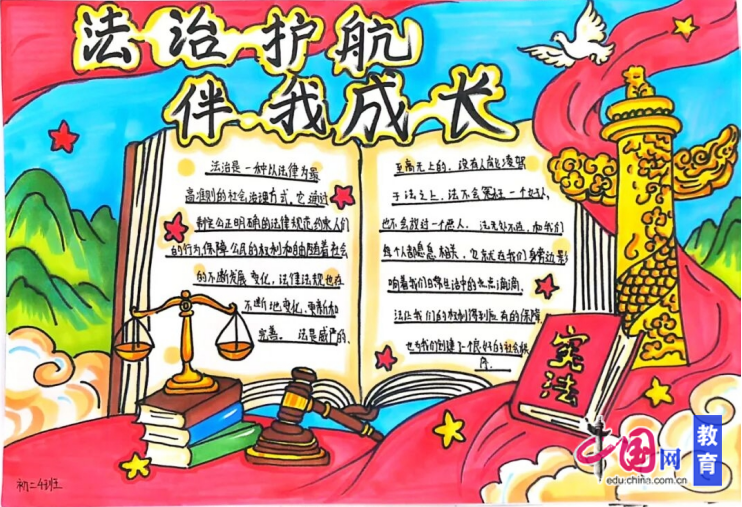 法治护航
伴我成长
法治是一种以法律为最
高准则的社会治理方式,它通过
制定公正明确的法律规范约束人们
的行为保障公民的权利和自由随着社会
的不断发展变化,法律法规也在
不断地变化,更新和
完善。法是威严的、
至高无上的,没有人能凌驾
于法之上,法不会冤枉一个好人,
也不会放过一个恶人。法无处不在,和我们
每个人都息息相关,它就在我们身旁边影
响着我们日常生活中的点点滴滴。
法让我们的权利得到应有的保障
也为我们创建了个良好的社会秩
序.
宪法
初二4班
中国网
教育
edu.china.com.cn